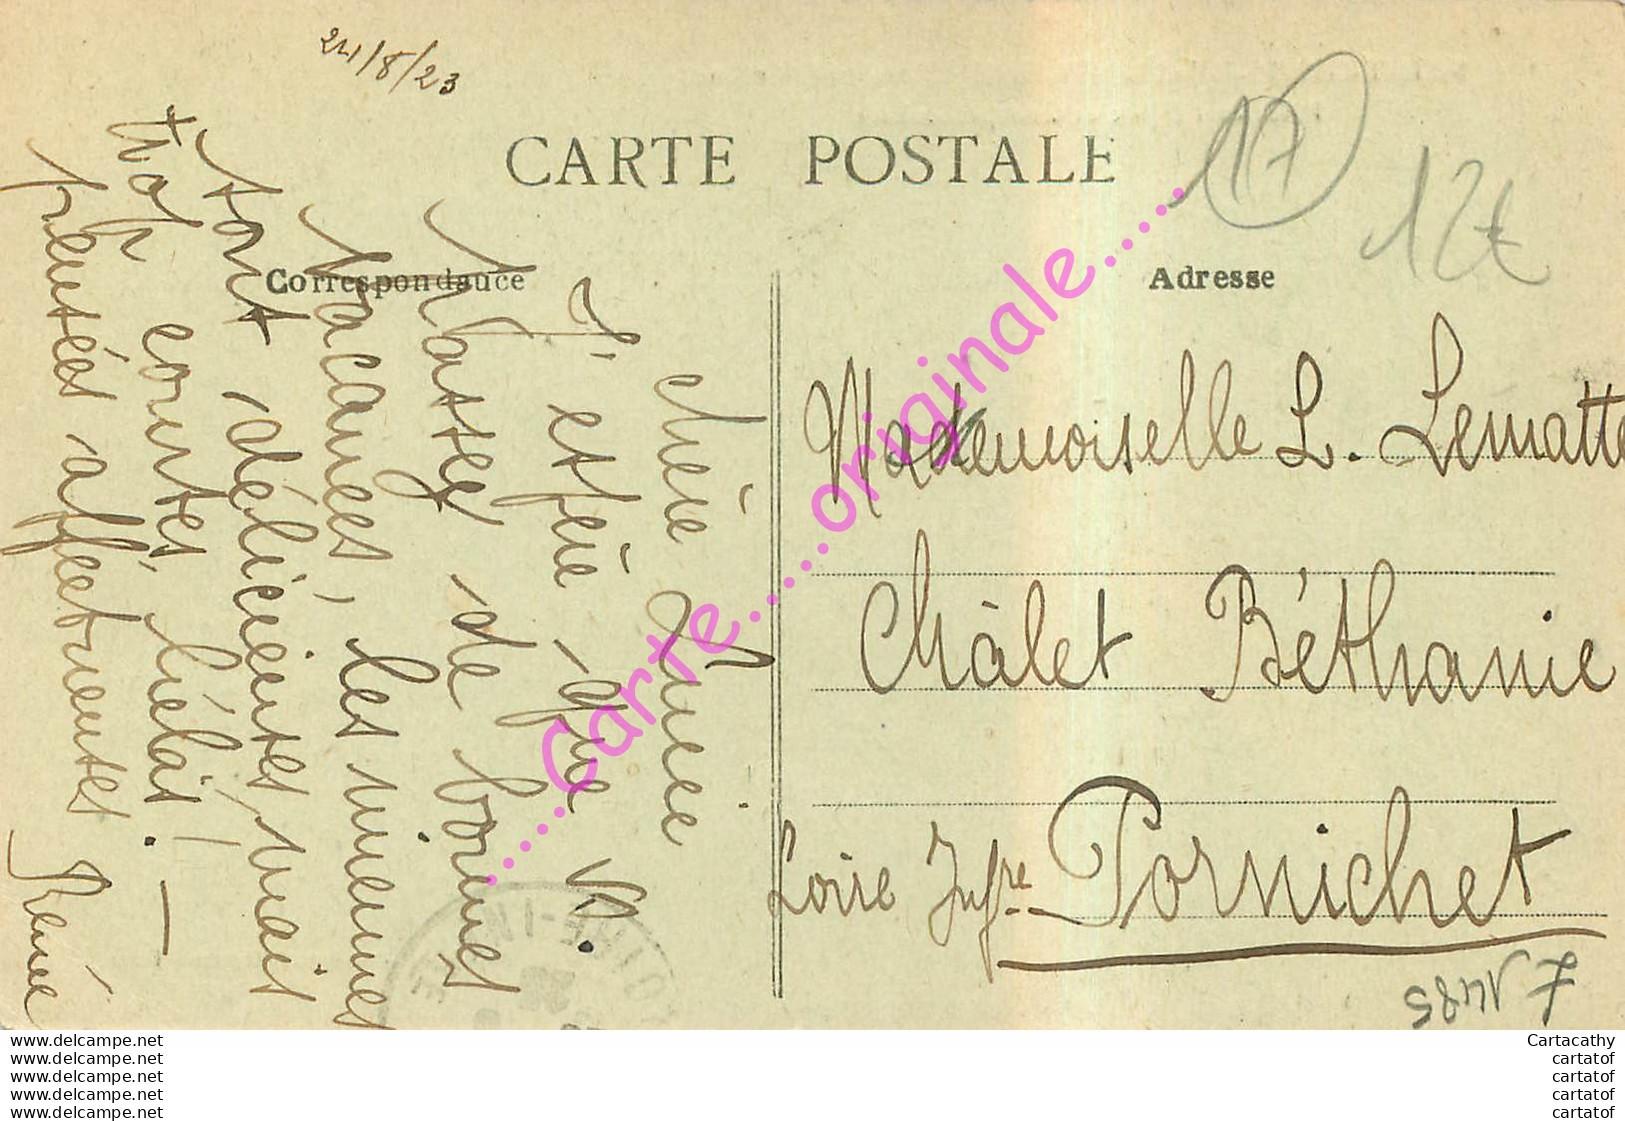 24/8/23
CARTE POSTALE
Correspondance
Adresse
17
12€
Chère Lucie
J'espère que v.
passez de bonnes
vacances, les miennes
sont délicieuses, mais
trop courtes, hélas! . —
pensées affectueuses
Renée
Mademoiselle L. Lematte
Châlet Béthanie
Loire Infre Pornichet
F 1485
...Carte.....originale......
www.delcampe.net
www.delcampe.net
www.delcampe.net
www.delcampe.net
www.delcampe.net
Cartacathy
cartatof
cartatof
cartatof
cartatof